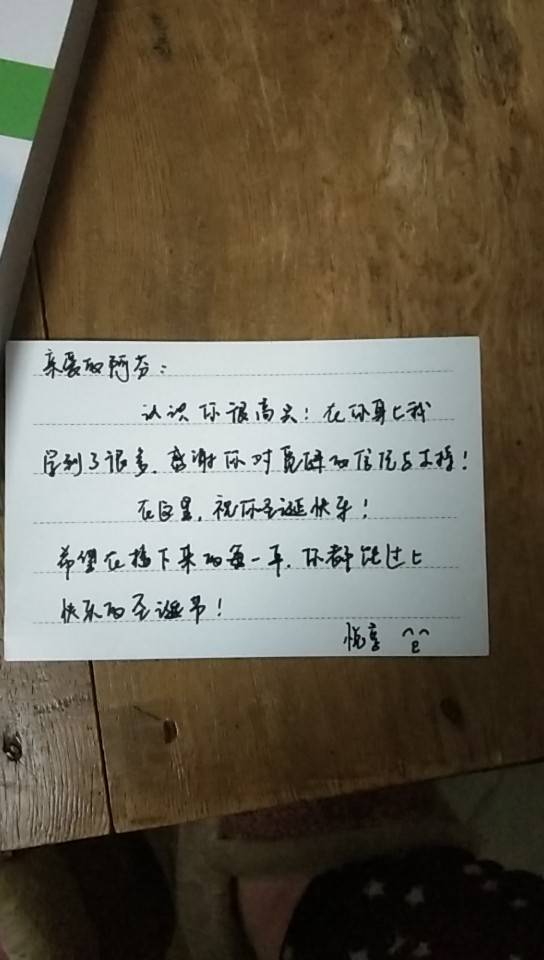 亲爱的阿芬：
认识你很高兴！在你身上我
学到了很多，感谢你对的信任与支持！
在这里，祝你圣诞快乐！
希望在接下来的每一年，你都能过上
快乐的圣诞节！
悦享 ^e^